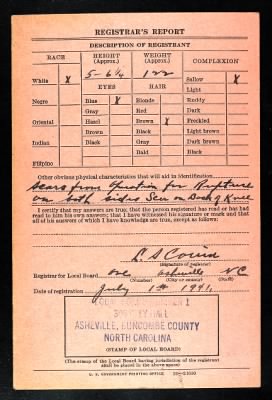 REGISTRAR'S REPORT
DESCRIPTION OF REGISTRANT
RACE HEIGHT (Approx.) WEIGHT (Approx.) COMPLEXION
White X 5-6¼ 122 Sallow X
EYES HAIR Light
Negro Blue X Blonde Ruddy
Gray Red Dark
Oriental Hazel Brown X Freckled
Brown Black Light brown
Indian Black Gray Dark brown
Bald Black
Filipino
Other obvious physical characteristics that will aid in identification
Scars from Operation for Rupture
on both sides Scar on Back of Knee
I certify that my answers are true; that the person registered has read or has had
read to him his own answers; that I have witnessed his signature or mark and that
all of his answers of which I have knowledge are true, except as follows:
(Signature of registrar)
Registrar for Local Board one Asheville NC
(Number) (City or county) (State)
Date of registration July 1941
1
HALL
ASHEVILLE, BUNCOMBE COUNTY
NORTH CAROLINA
(STAMP OF LOCAL BOARD)
(The stamp of the Local Board having jurisdiction of the registrant
shall be placed in the above space)
U. S. GOVERNMENT PRINTING OFFICE